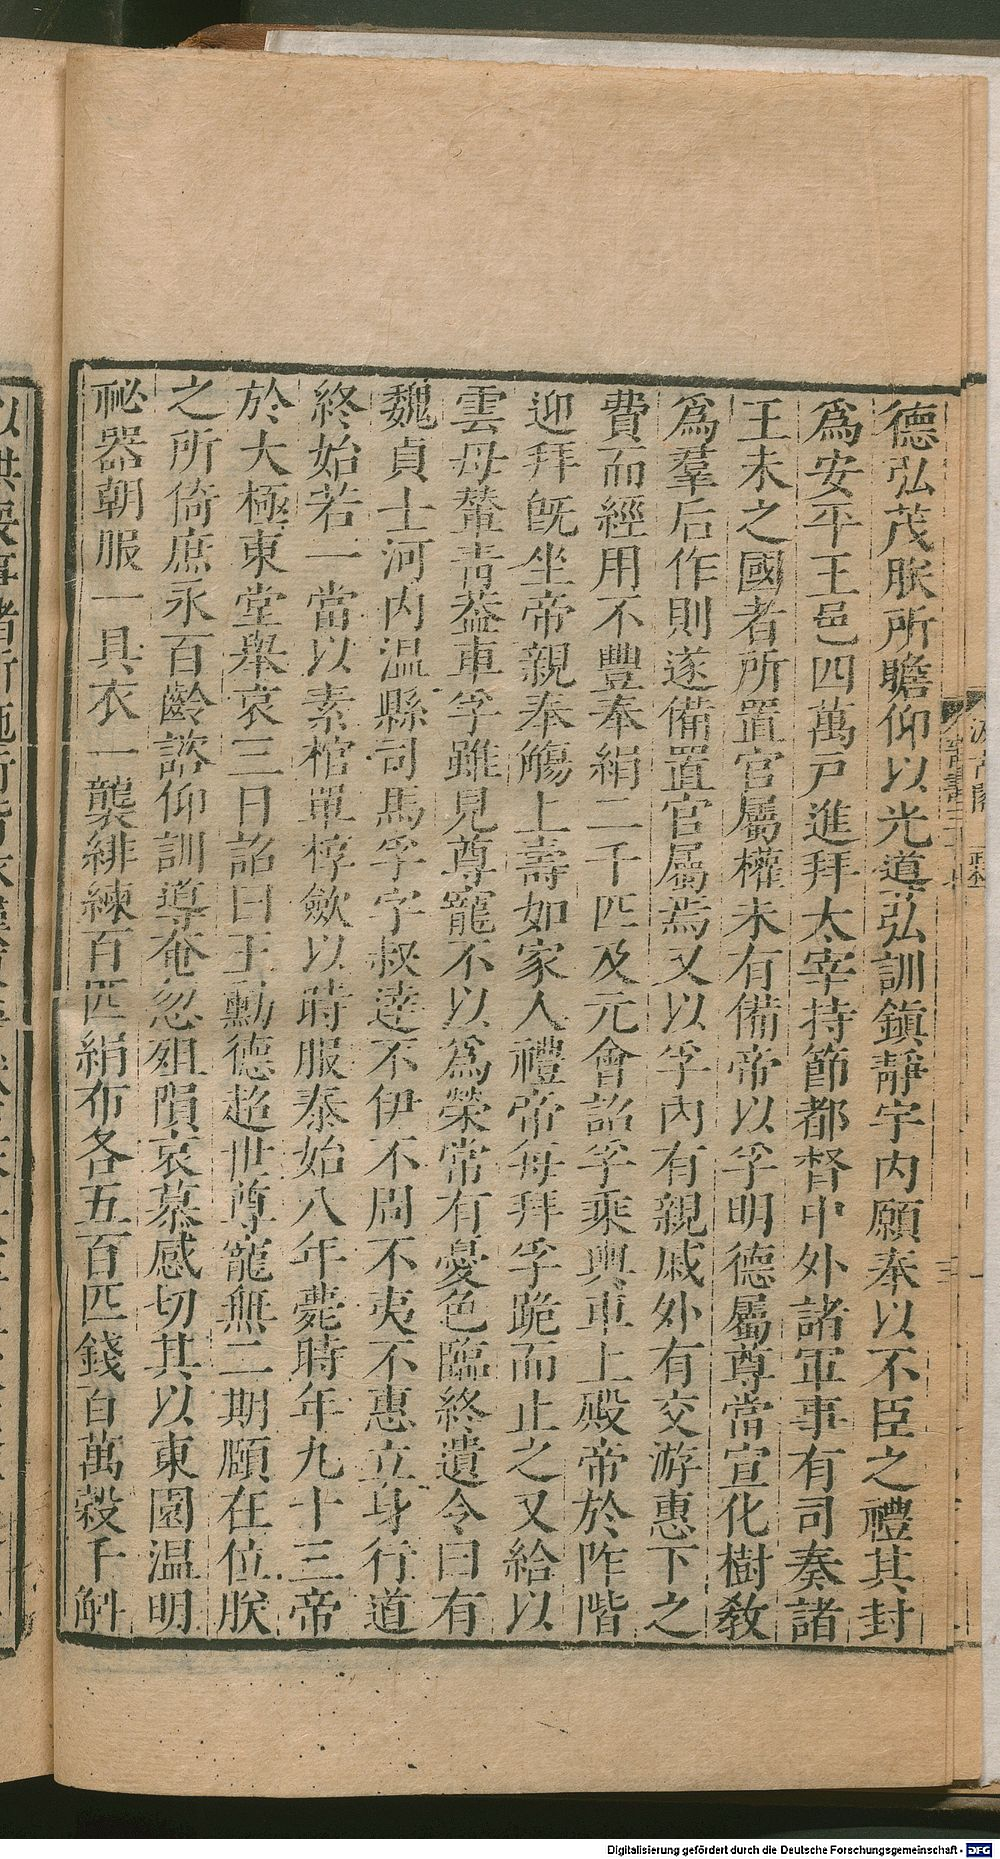 德弘茂朕所瞻仰以光道弘訓鎭靜宇内願奉以不臣之禮其封
爲安平王邑四萬戸進拜太宰持節都督中外諸軍事有司奏諸
王未之國者所置官屬權未有備帝以孚明德屬尊當宣化樹敎
爲羣后作則遂備置官屬焉又以孚内有親戚外有交游惠下之
費而經用不豐奉絹二千匹及元會詔孚乘輿車上殿帝於阼階
迎拜旣坐帝親奉觴上壽如家人禮帝每拜孚跪而止之又給以
雲母輦靑葢車孚雖見尊寵不以爲榮常有憂色臨終遺令曰有
魏貞士河内温縣司馬孚字叔逹不伊不周不夷不惠立身行道
終始若一當以素棺單椁斂以時服泰始八年薨時年九十三帝
於大極東堂舉哀三日詔曰王勳德超世尊寵無二期頤在位朕
之所倚庶永百齡諮仰訓導奄忽殂隕哀慕感切其以東園温明
祕器朝服一具衣一襲緋練百匹絹布各五百匹錢百萬榖千斛
Digitalisierung gefördert durch die Deutsche Forschungsgemeinschaft - DFG